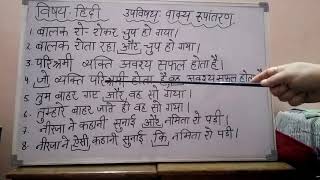 विषय: हिंदी उपविषय: वाक्य रूपांतरण
1. बालक रो-रोकर चुप हो गया।
2. बालक रोता रहा और चुप हो गया।
3. परिश्रमी व्यक्ति अवश्य सफल होता है।
4. जो व्यक्ति परिश्रमी होता है, वह अवश्य सफल होता
5. तुम बाहर गए और वह सो गया।
6. तुम्हारे बाहर जाते ही वह सो गया।
7. नीरजा ने कहानी सुनाई और नमिता रो पड़ी।
8. नीरजा ने ऐसी कहानी सुनाई कि नमिता रो पड़ी।